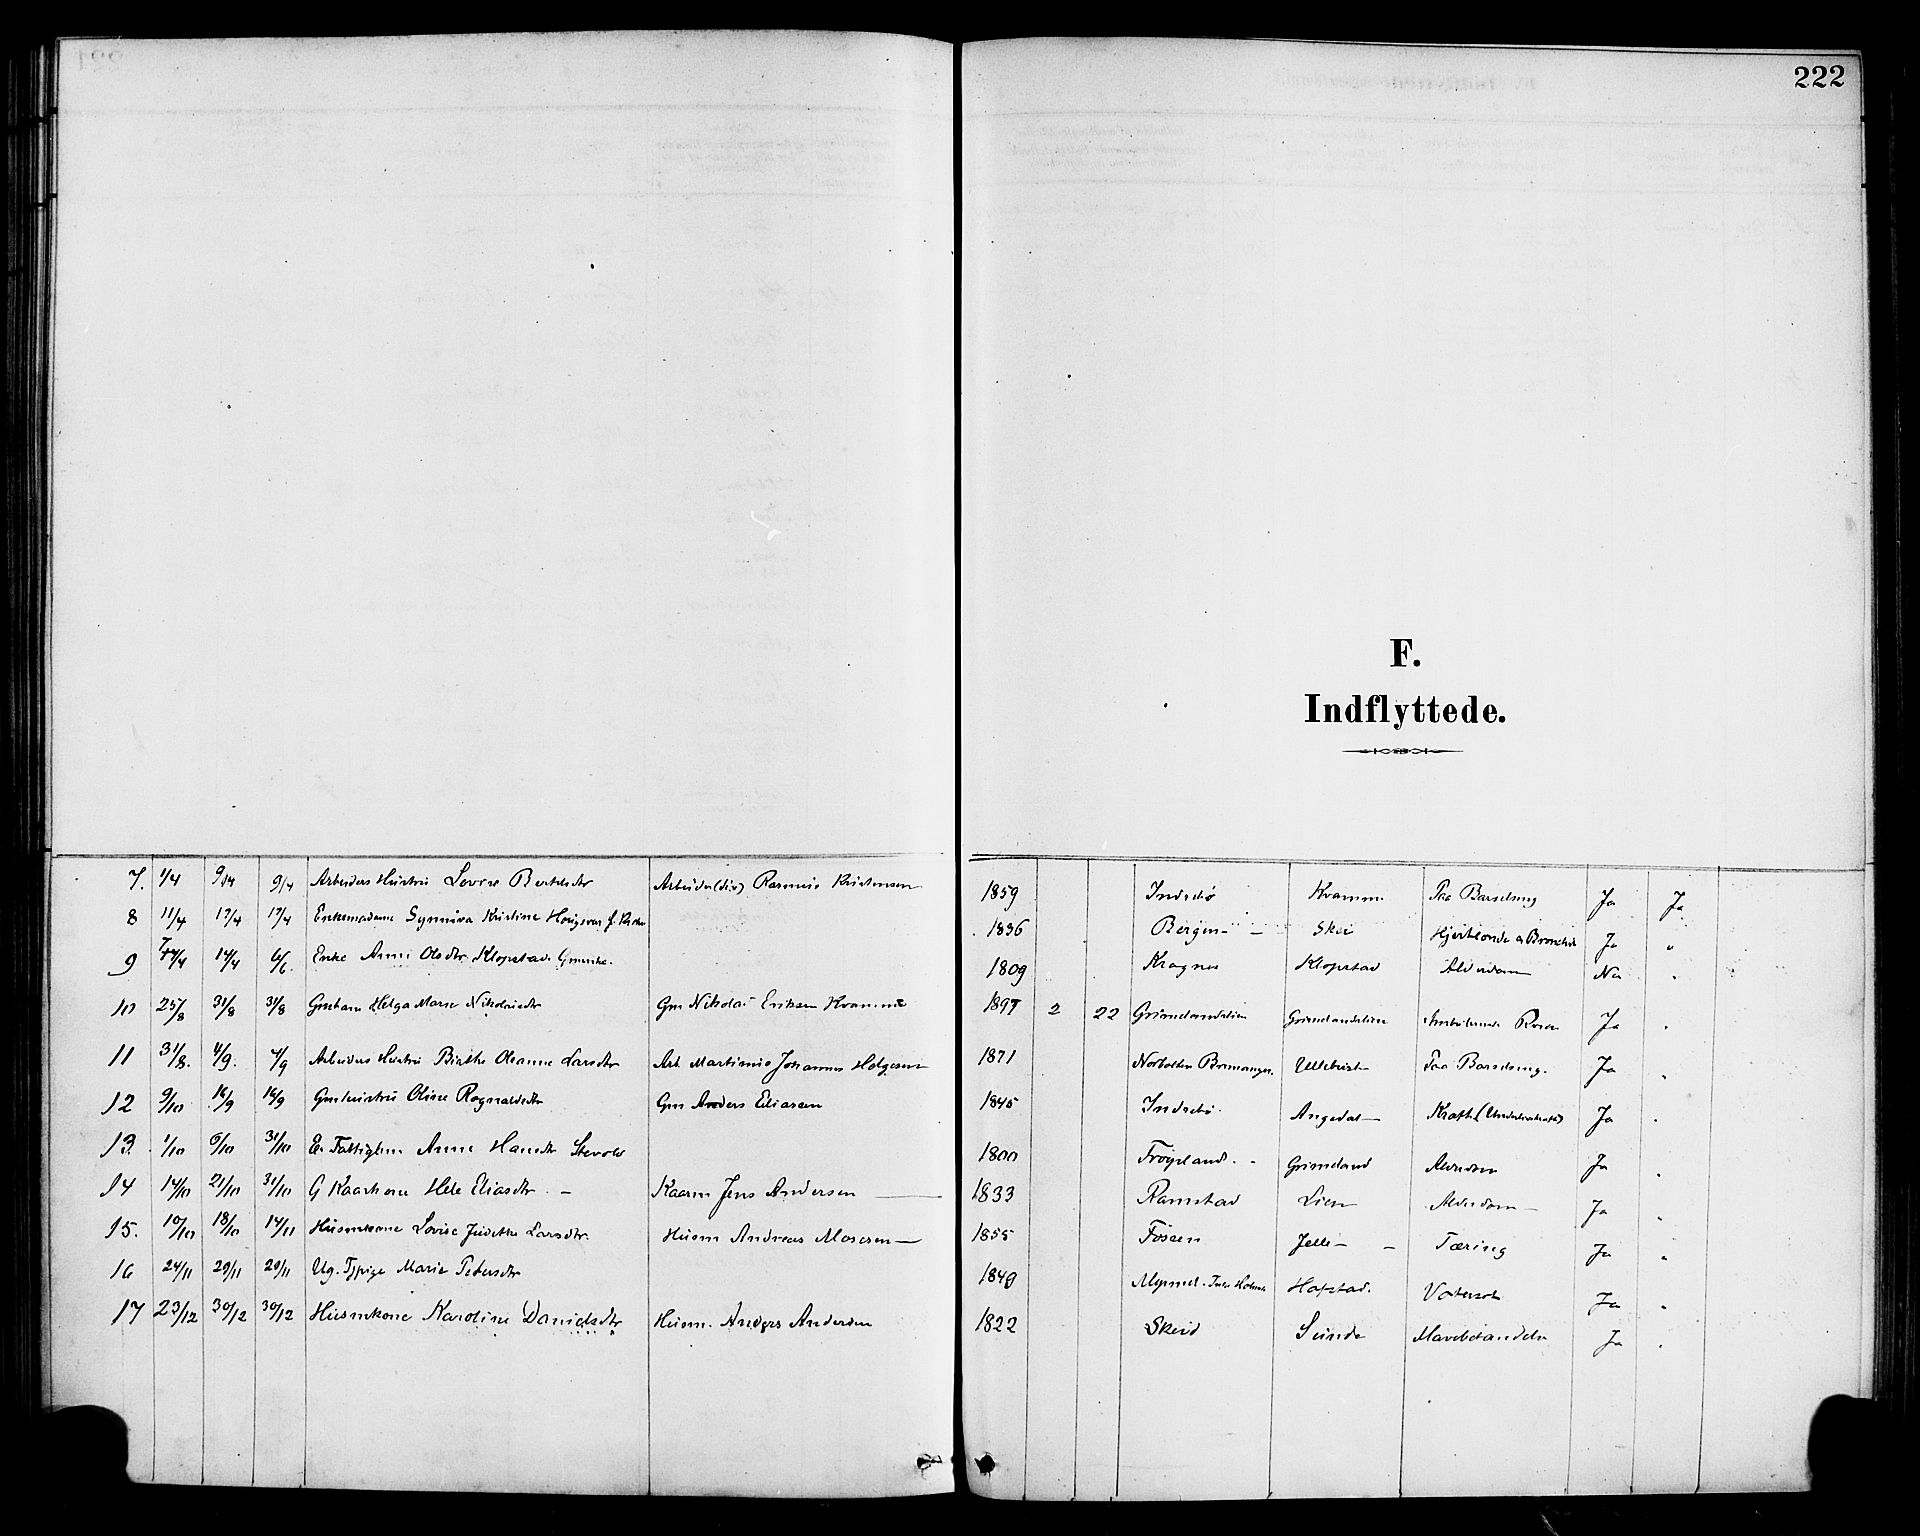 222
F.
Indflyttede.
7. 1/4 9/4 9/4 Arbeiders Hustru Lovise Bertelsdtr Arbeider Rasmus Kristensen 1859 Indrebø Kvamm Paa Barselseng Ja Ja
8 11/4 17/4 17/4 Enkemadame Synnøva Kristine 1836 Bergen - Skei Ja "
9 14/4 6/6. Enke Anne Olsdtr Klopstad 1809 Kragnes Klopstad Alderdom Nei "
10 25/8 31/8 31/8 Helga Marie Nikolaisdtr Gm Nikolai Eriksen Kvamme 1897 2 22 Grimelandslien Grimelandslien Ja "
11 31/8. 4/9. 4/9 Arbeiders Hustru Birthe Oleanne Larsdtr Arb. Martinus Johannes Helgesen 1871 Bremanger. Paa Barselseng. Ja "
12 9/10 16/9 16/9 Gmhustru Oline Ragnaldsdtr Gm Anders Eliasen 1845 Indrebø. Angedal Kræft (Underlivskræft) Ja "
13. 1/10 6/10 31/10 Anne Hansdtr 1800 Frøysland. - Grimeland Alderdom Ja "
14 14/10 21/10 31/10 G Kaarkone Eliasdtr. - Kaarm Jens Andersen 1833 Ramstad Lien Alderdom Ja "
15. 10/10 18/10 14/11 Husmkone Lovise Judithe Larsdtr. Husm Andreas Mosesen 1855 Fossen Jelle - Tæring Ja "
16 24/11 29/11 29/11 Ug. Tjpige Marie Petersdtr 1849 Myrmel. Hafstad. Vatersot Ja "
17 23/12 30/12 30/12 Husmkone Karoline Danielsdtr Husm. Anders Andersen 1822 Skeid Sunde Ja "